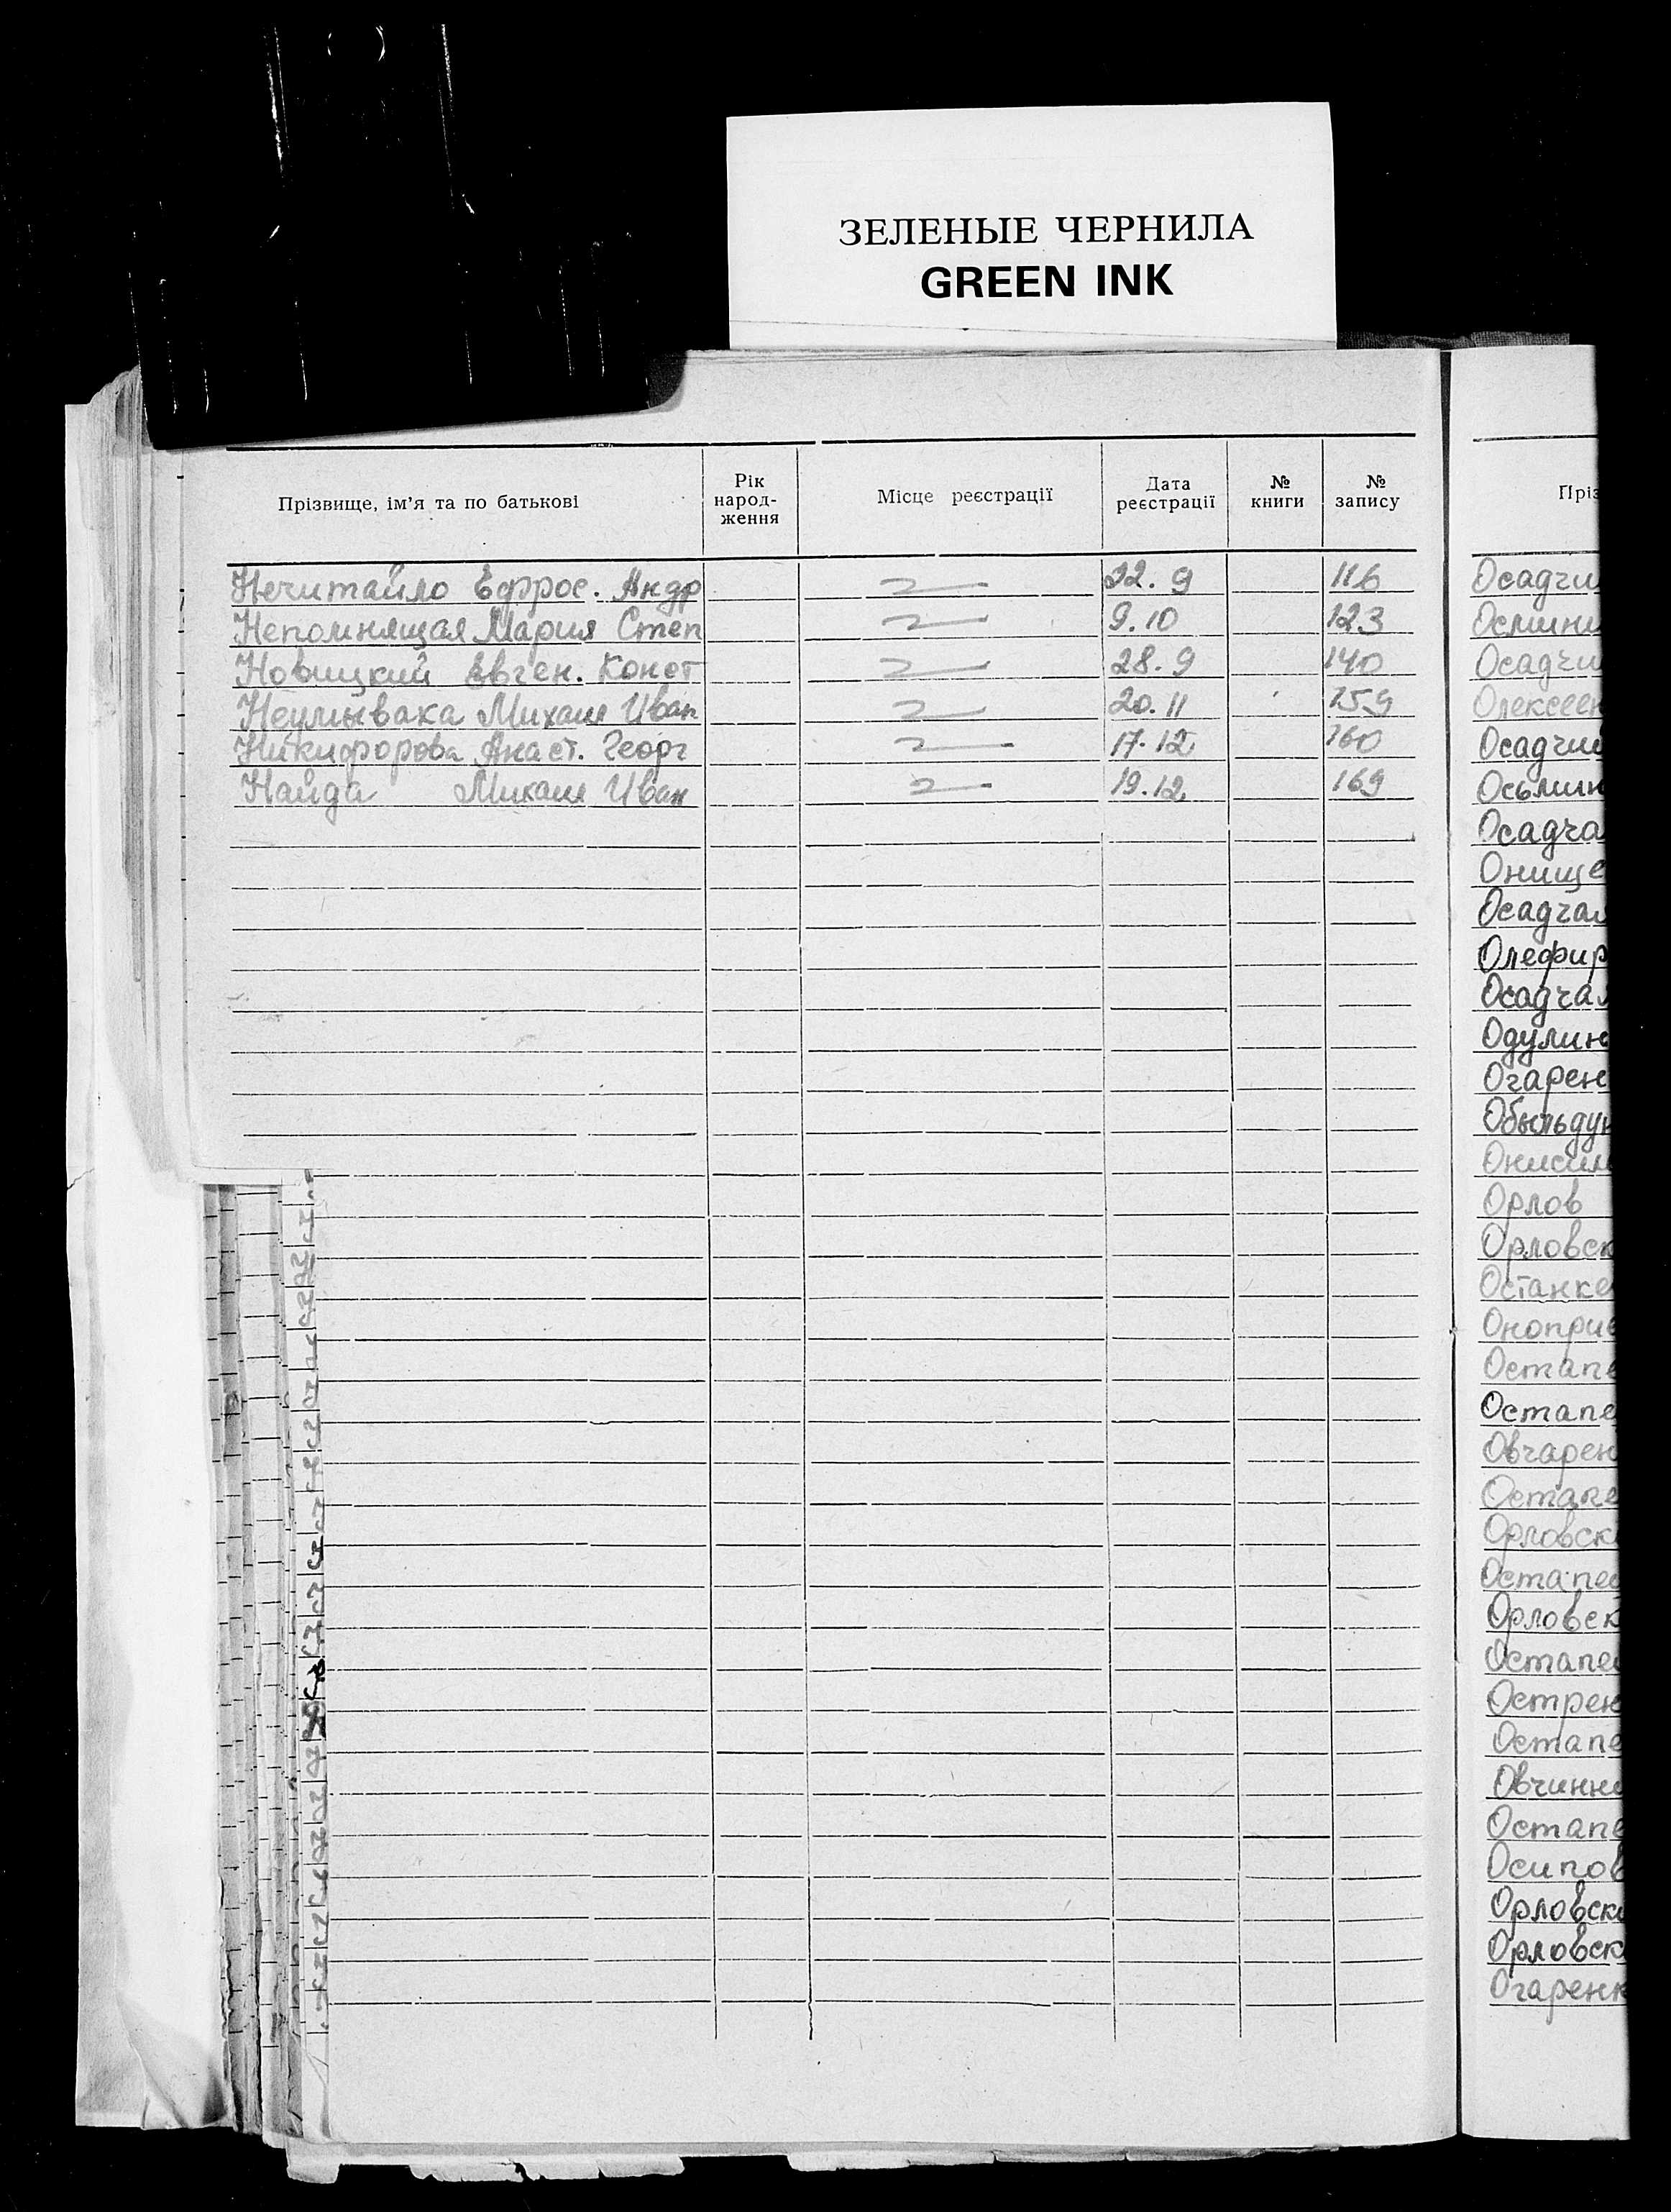 ЗЕЛЕНЫЕ ЧЕРНИЛА
GREEN INK
Прізвище, ім’я та по батькові
Рік народ-ження
Місце реєстрації
Дата реєстрації
№ книги
№ запису
Нечитайло Ефрос. Андр 22. 9 116
Непомнящая Мария Степ 9. 10 123
Новицкий Евген. Конст 28. 9 140
Неумывака Михаил Иван 20. 11 159
Никифорова Анаст. Георг 17. 12 160
Найда Михаил Иван 19. 12 169
Пріз
Осадчи
Осмини
Осадчи
Олексеен
Осадчи
Осьмин
Осадча
Онище
Осадчая
Олефир
Осадчая
Одулин
Огарен
Обыльдун
Онисим
Орлов
Орловск
Останке
Оноприе
Остапе
Остапе
Овчарен
Остапе
Орловск
Остапе
Орловск
Остапе
Острен
Остапе
Овчинни
Остапе
Осипов
Орловск
Орловск
Огаренк